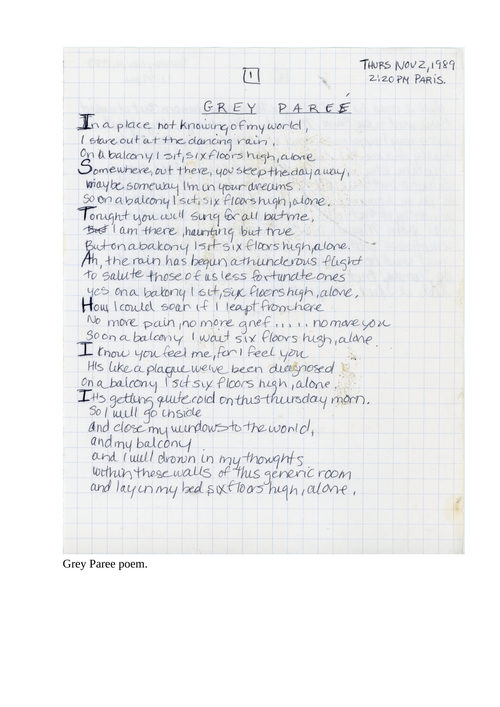 THURS NOV 2, 1989
2:20 PM PARIS.
1
GREY PAREÉ
In a place not knowing of my world,
I stare out at the dancing rain.
On a balcony I sit, six floors high, alone
Somewhere, out there, you sleep the day away,
maybe someway I'm in your dreams
so on a balcony I sit, six floors high, alone.
Tonight you will sing for all but me,
But I am there, haunting but true
But on a balcony I sit six floors high, alone.
Ah, the rain has begun a thunderous flight
to salute those of us less fortunate ones
yes on a balcony I sit, six floors high, alone,
How I could soar if I leapt from here
No more pain, no more grief..... no more you
So on a balcony I wait six floors high, alone
I know you feel me, for I feel you
It's like a plague we've been diagnosed
On a balcony I sit six floors high, alone.
It's getting quite cold on this thursday morn.
So I will go inside
and close my windows to the world,
and my balcony
and I will drown in my thoughts
within these walls of this generic room
and lay in my bed six floors high, alone.
Grey Paree poem.